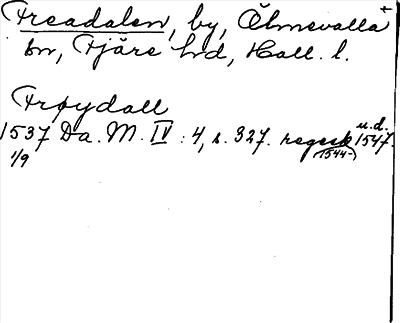 Freadalen, by, Ölmevalla +
sn, Fjäre hd, Hall. l.
Frøydall
1537 Da. M. IV : 4, s. 327. regest u.d. 1547.
1/9 1544-